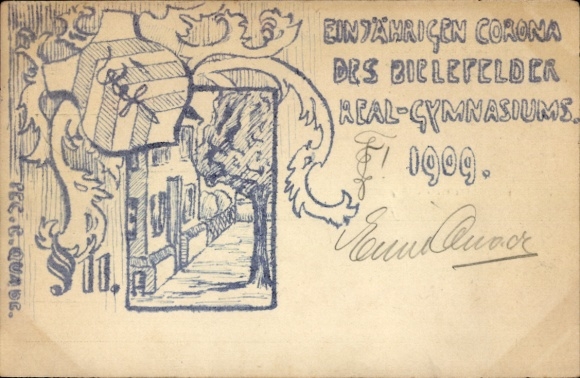 EINJÄHRIGEN CORONA
DES BIELEFELDER
REAL-GYMNASIUMS.
1909.
II.
FEC. E. QUADE.